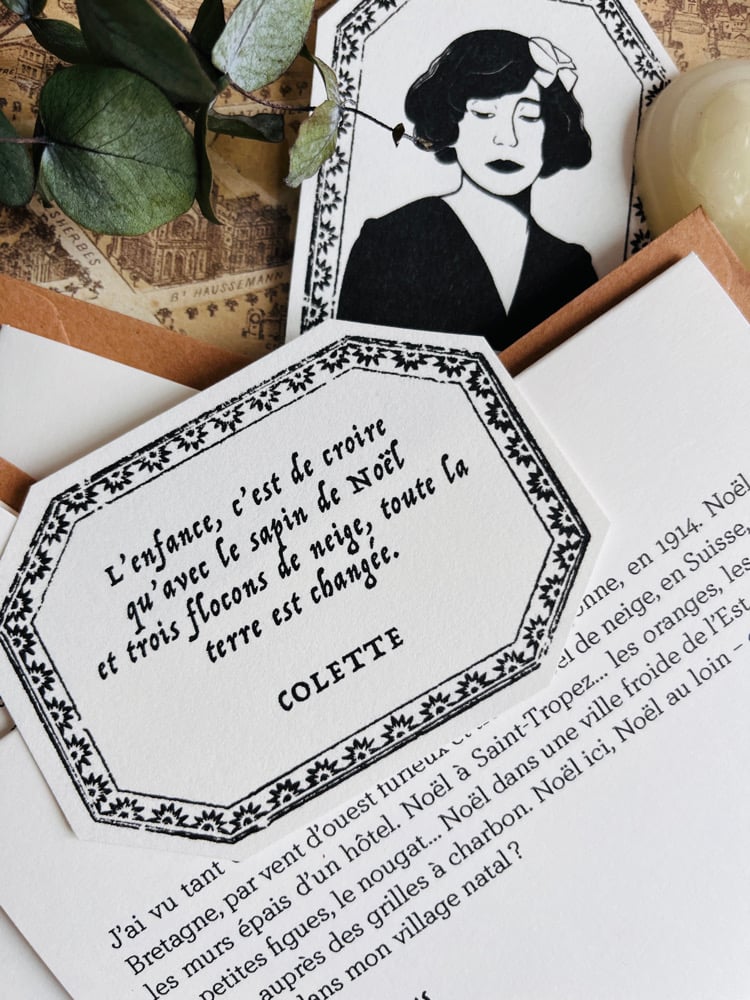 SHERBES
Bᵈ HAUSSEMANN
L'enfance, c'est de croire
qu'avec le sapin de Noël
et trois flocons de neige, toute la
terre est changée.
COLETTE
onne, en 1914. Noël
el de neige, en Suisse,
J'ai vu tant
Bretagne, par vent d'ouest furieux et
les murs épais d'un hôtel. Noël à Saint-Tropez... les oranges, les
petites figues, le nougat... Noël dans une ville froide de l'Est
auprès des grilles à charbon. Noël ici, Noël au loin –
dans mon village natal ?